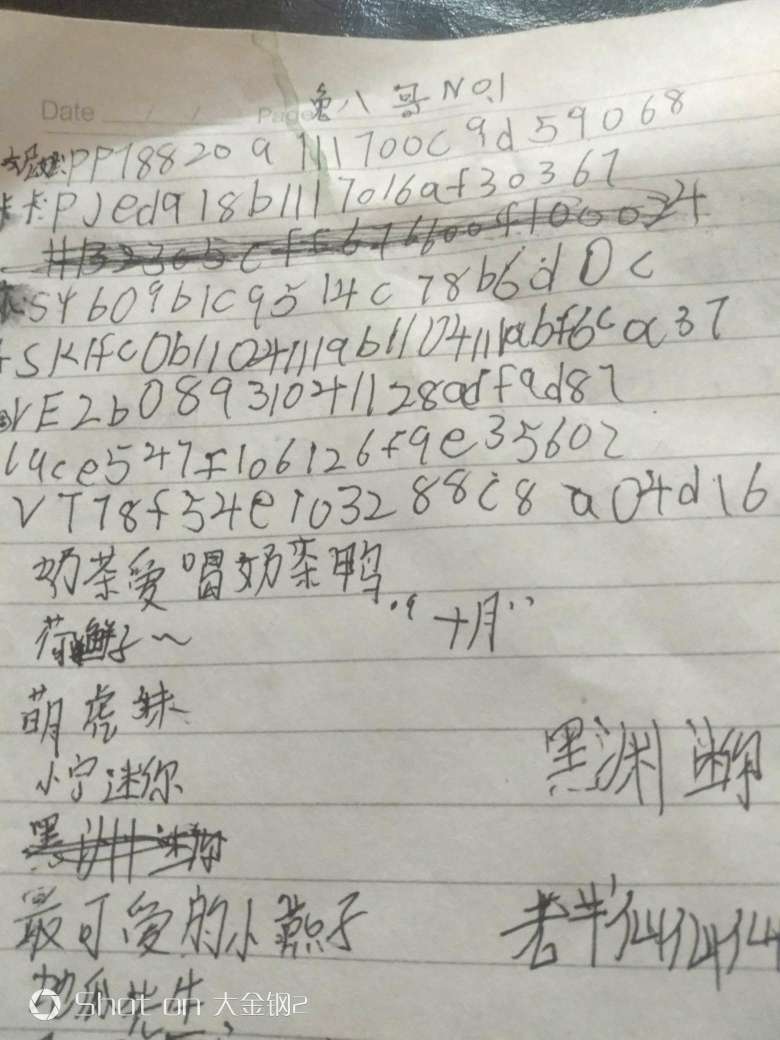 Date / / Page 兔八哥No.1
PP788209111700c9d59068
卡卡:PJed918b1117016af30367
SY609b1c9514c78b6d0c
SK1fc0b11041119b1104111abf6ca37
VE2b08931041128adf9d87
19ce547f106126f9e35602
VT78f54e103288c8a04d16
奶茶爱喝奶茶鸭
“十月”
萌虎妹
小宁迷你
黑渊迷你
最可爱的小燕子
老羊仙仙仙
地瓜先生
Shot on 大金钢2